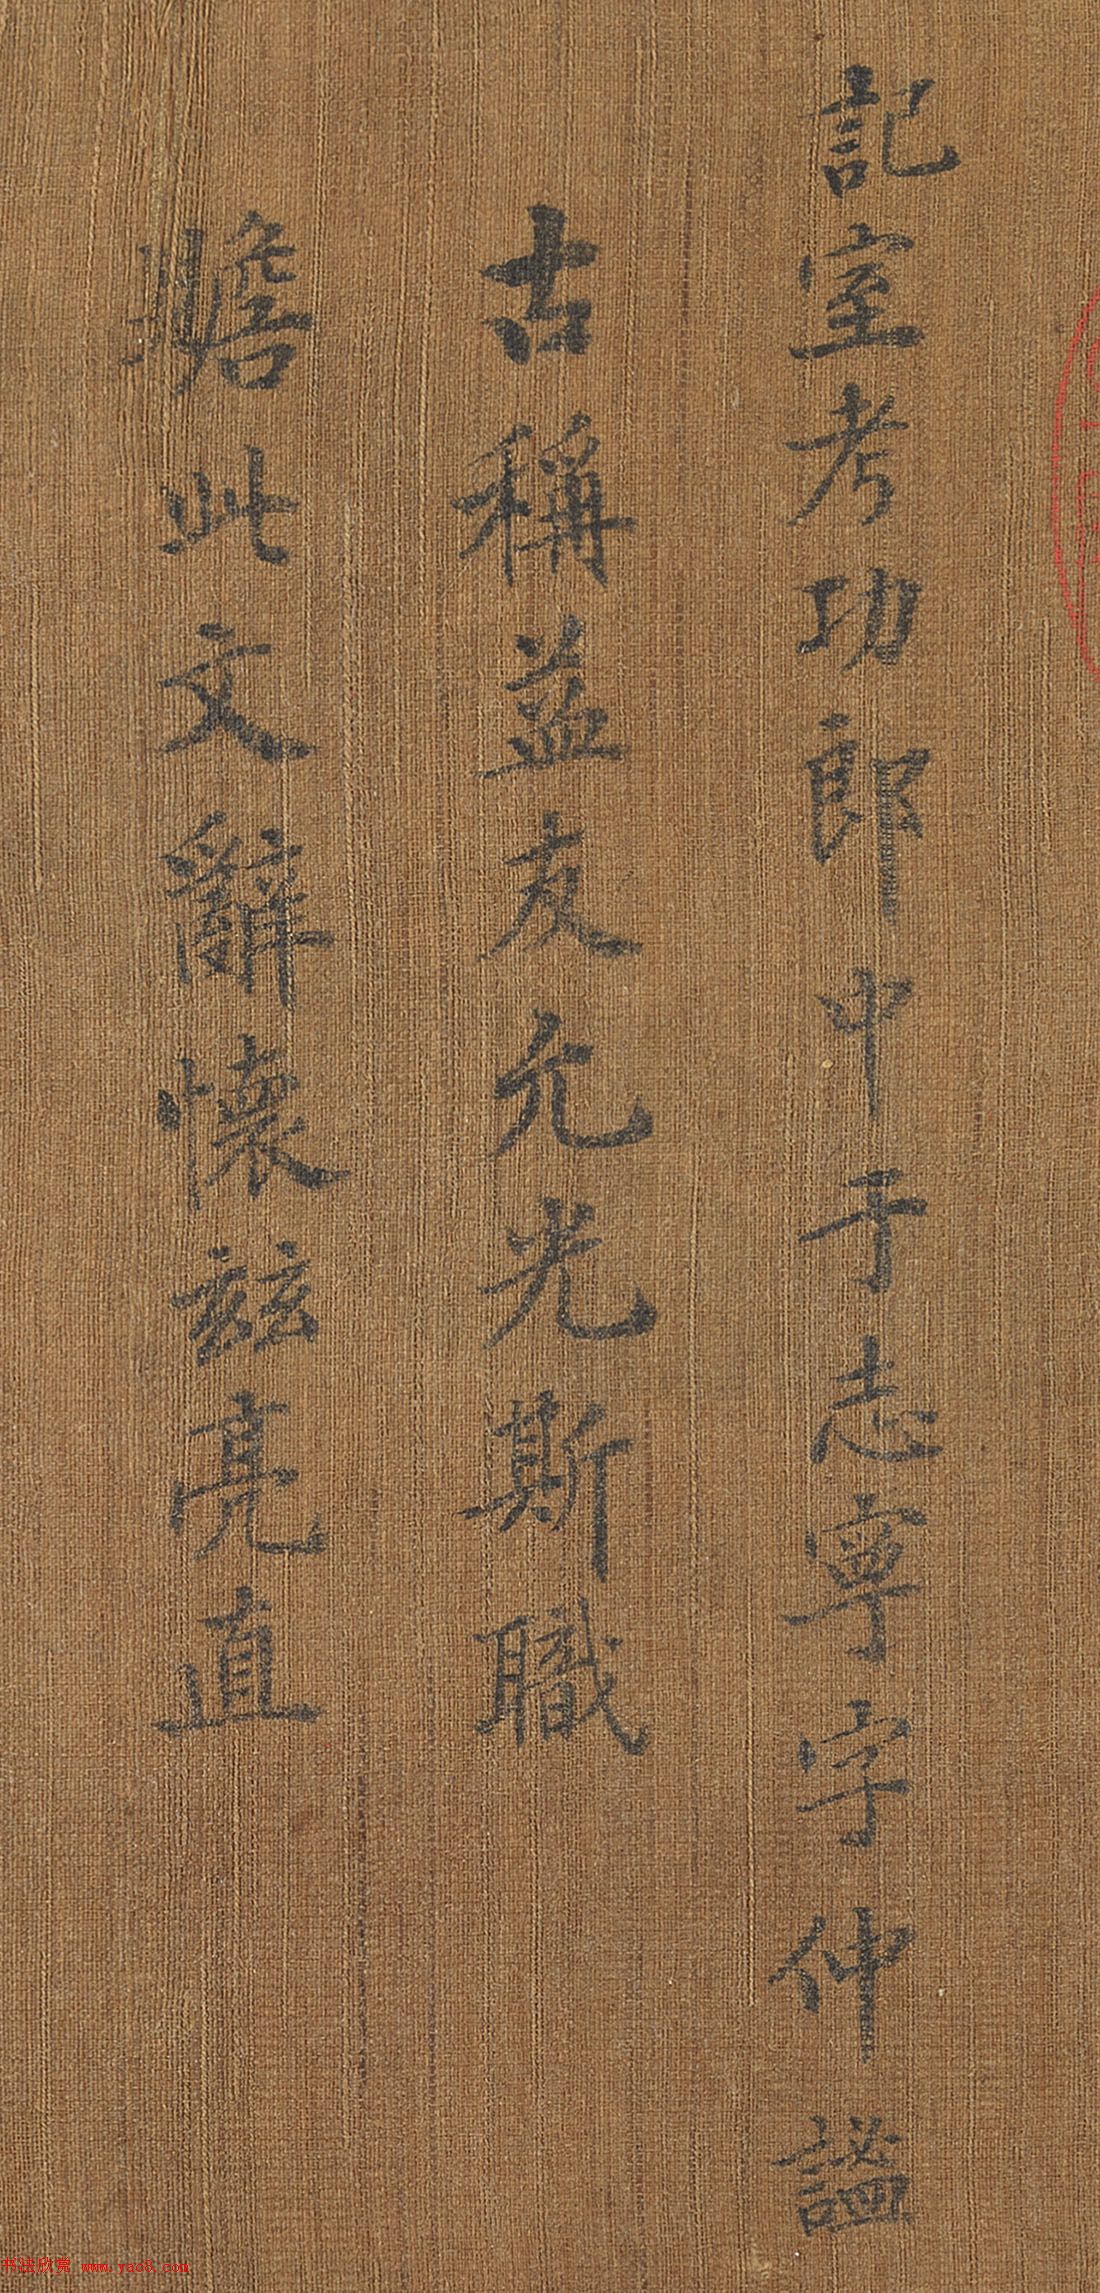 記室考功郎中于志寧字仲謐
古稱益友允光斯職
蟾此文辭懷玆亮直
书法欣赏 www.yac8.com